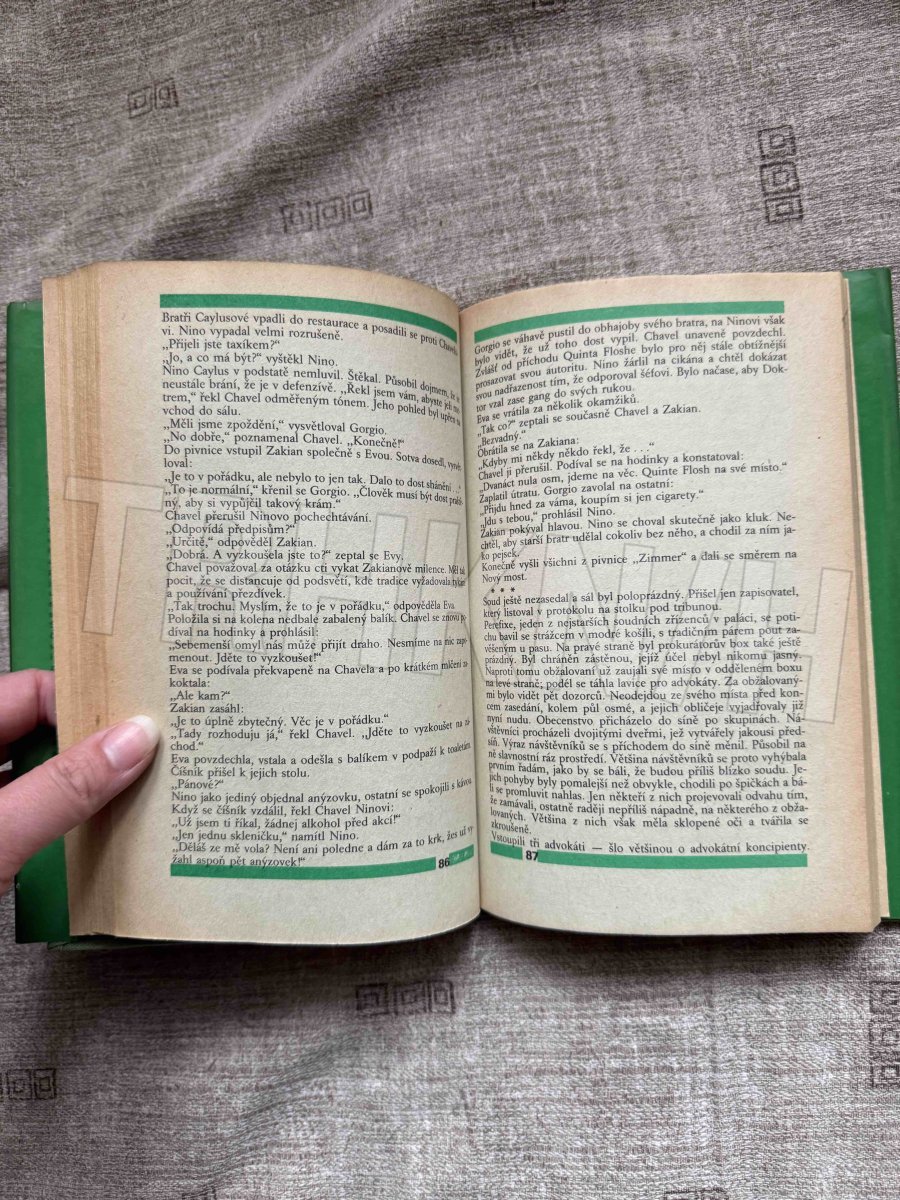 Bratři Caylusové vpadli do restaurace a posadili se proti Chavelo
vi. Nino vypadal velmi rozrušeně.
„Přijeli jste taxíkem?“
„Jo, a co má být?“ vyštěkl Nino.
Nino Caylus v podstatě nemluvil. Štěkal. Působil dojmem, že se
neustále brání, že je v defenzívě. „Řekl jsem vám, abyste jeli
trem,“ řekl Chavel odměřeným tónem. Jeho pohled byl upřen na
vchod do sálu.
„Měli jsme zpoždění,“ vysvětloval Gorgio.
„No dobře,“ poznamenal Chavel. „Konečně!“
Do pivnice vstoupil Zakian společně s Evou. Sotva dosedl,
loval:
„Je to v pořádku, ale nebylo to jen tak. Dalo to dost shánění . .“
„To je normální,“ křenil se Gorgio. „Člověk musí být dost
ný, aby si vypůjčil takový krám.“
Chavel přerušil Ninovo pochechtávání.
„Odpovídá předpisům?“
„Určitě,“ odpověděl Zakian.
„Dobrá. A vyzkoušela jste to?“ zeptal se Evy.
Chavel považoval za otázku cti vykat Zakianově milence. Měl tak
pocit, že se distancuje od podsvětí, kde tradice vyžadovala tykání
a používání přezdívek.
„Tak trochu. Myslím, že to je v pořádku,“ odpověděla Eva
Položila si na kolena nedbale zabalený balík. Chavel se znovu po
díval na hodinky a prohlásil:
„Sebemenší omyl nás může přijít draho. Nesmíme na nic zapo
menout. Jděte to vyzkoušet!“
Eva se podívala překvapeně na Chavela a po krátkém mlčení za
koktala:
„Ale kam?“
Zakian zasáhl:
„Je to úplně zbytečný. Věc je v pořádku.“
„Tady rozhoduju já,“ řekl Chavel. „Jděte to vyzkoušet na zá
chod.“
Eva povzdechla, vstala a odešla s balíkem v podpaží k toaletám.
Číšník přišel k jejich stolu.
„Pánové?“
Nino jako jediný objednal anýzovku, ostatní se spokojili s kávou.
Když se číšník vzdálil, řekl Chavel Ninovi:
„Už jsem ti říkal, žádnej alkohol před akcí!“
„Jen jednu skleničku,“ namítl Nino.
„Děláš ze mě vola? Není ani poledne a dám za to krk, žes už vy
žahl aspoň pět anýzovek!“
86
Gorgio se váhavě pustil do obhajoby svého bratra, na Ninovi však
bylo vidět, že už toho dost vypil. Chavel unaveně povzdechl.
Zvlášť od příchodu Quinta Floshe bylo pro něj stále obtížnější
prosazovat svou autoritu. Nino žárlil na cikána a chtěl dokázat
svou nadřazenost tím, že odporoval šéfovi. Bylo načase, aby Dok-
tor vzal zase gang do svých rukou.
Eva se vrátila za několik okamžiků.
„Tak co?“ zeptali se současně Chavel a Zakian.
„Bezvadný.“
Obrátila se na Zakiana:
„Kdyby mi někdy někdo řekl, že . . .“
Chavel ji přerušil. Podíval se na hodinky a konstatoval:
„Dvanáct nula osm, jdeme na věc. Quinte Flosh na své místo.“
Zaplatil útratu. Gorgio zavolal na ostatní:
„Přijdu hned za váma, koupím si jen cigarety.“
„Jdu s tebou,“ prohlásil Nino.
Zakian pokýval hlavou. Nino se choval skutečně jako kluk. Ne-
chtěl, aby starší bratr udělal cokoliv bez něho, a chodil za ním ja-
ko pejsek.
Konečně vyšli všichni z pivnice „Zimmer“ a dali se směrem na
Nový most.
* * *
Soud ještě nezasedal a sál byl poloprázdný. Přišel jen zapisovatel,
který listoval v protokolu na stolku pod tribunou.
Perefixe, jeden z nejstarších soudních zřízenců v paláci, se poti-
chu bavil se strážcem v modré košili, s tradičním párem pout za-
věšeným u pasu. Na pravé straně byl prokurátorův box také ještě
prázdný. Byl chráněn zástěnou, jejíž účel nebyl nikomu jasný.
Naproti tomu obžalovaní už zaujali své místo v odděleném boxu
na levé straně; podél se táhla lavice pro advokáty. Za obžalovaný-
mi bylo vidět pět dozorců. Neodejdou ze svého místa před kon-
cem zasedání, kolem půl osmé, a jejich obličeje vyjadřovaly již
nyní nudu. Obecenstvo přicházelo do síně po skupinách. Ná-
vštěvníci procházeli dvojitými dveřmi, jež vytvářely jakousi před-
síň. Výraz návštěvníků se s příchodem do síně měnil. Působil na
ně slavnostní ráz prostředí. Většina návštěvníků se proto vyhýbala
prvním řadám, jako by se báli, že budou příliš blízko soudu. Je-
jich pohyby byly pomalejší než obvykle, chodili po špičkách a bá-
li se promluvit nahlas. Jen někteří z nich projevovali odvahu tím,
že zamávali, ostatně raději nepříliš nápadně, na některého z obža-
lovaných. Většina z nich však měla sklopené oči a tvářila se
zkroušeně.
Vstoupili tři advokáti — šlo většinou o advokátní koncipienty.
87